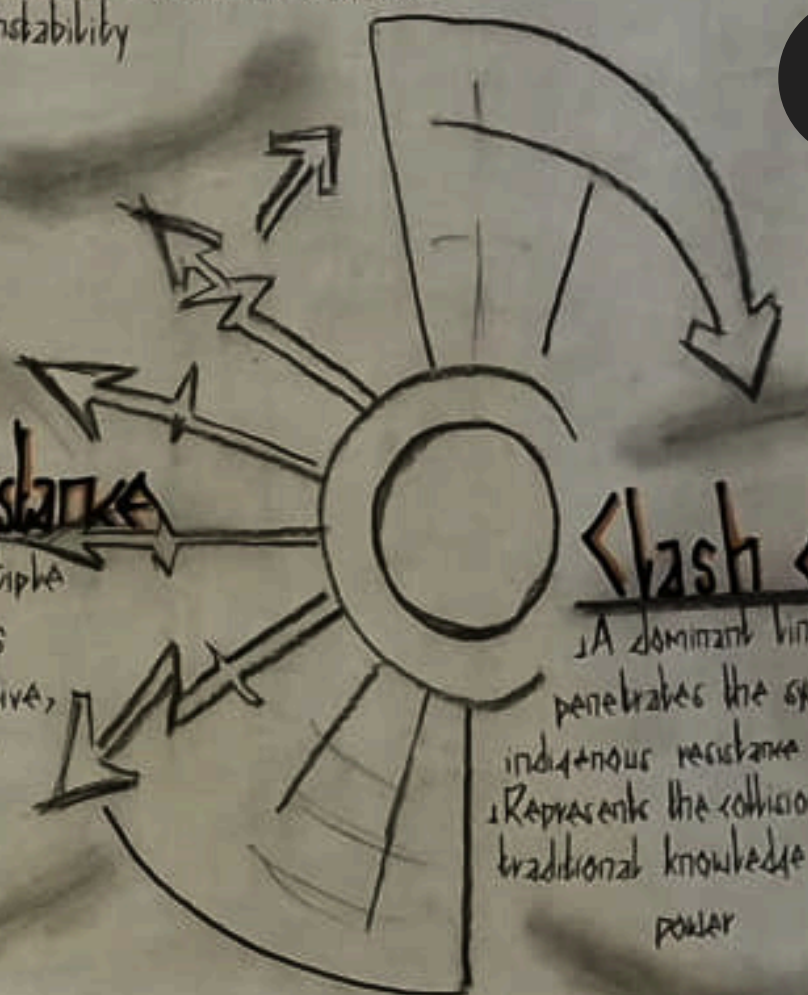 nstability
stance
iple
s
ive,
Clash
A dominant lin
penetrates the sp
indigenous resistance
Represents the collisio
traditional knowledge
power